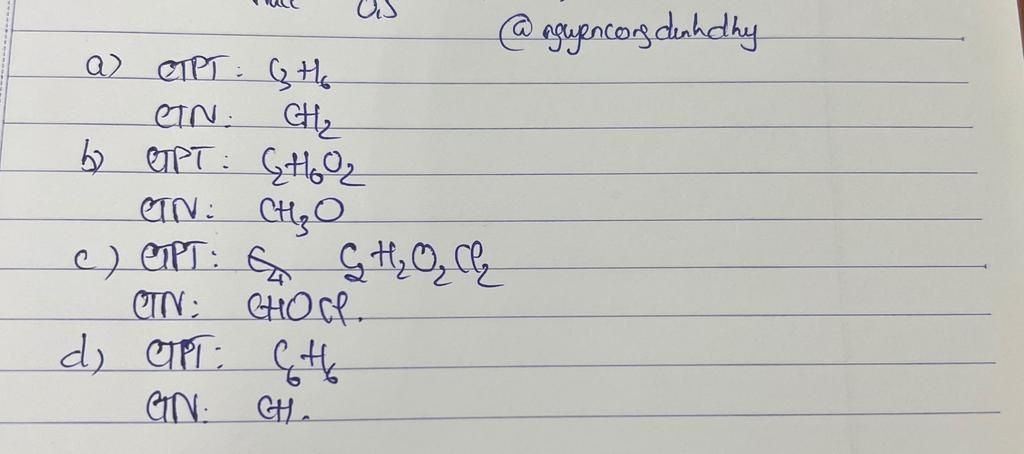 0,5
@nguyencongdinhdhy
a) CTPT: C₃H₆
CTN: CH₂
b) CTPT: C₂H₆O₂
CTN: CH₃O
c) CTPT: C₂H₂O₂Cl₂
CTN: CHOCl.
d) CTPT: C₆H₆
CTN: CH.